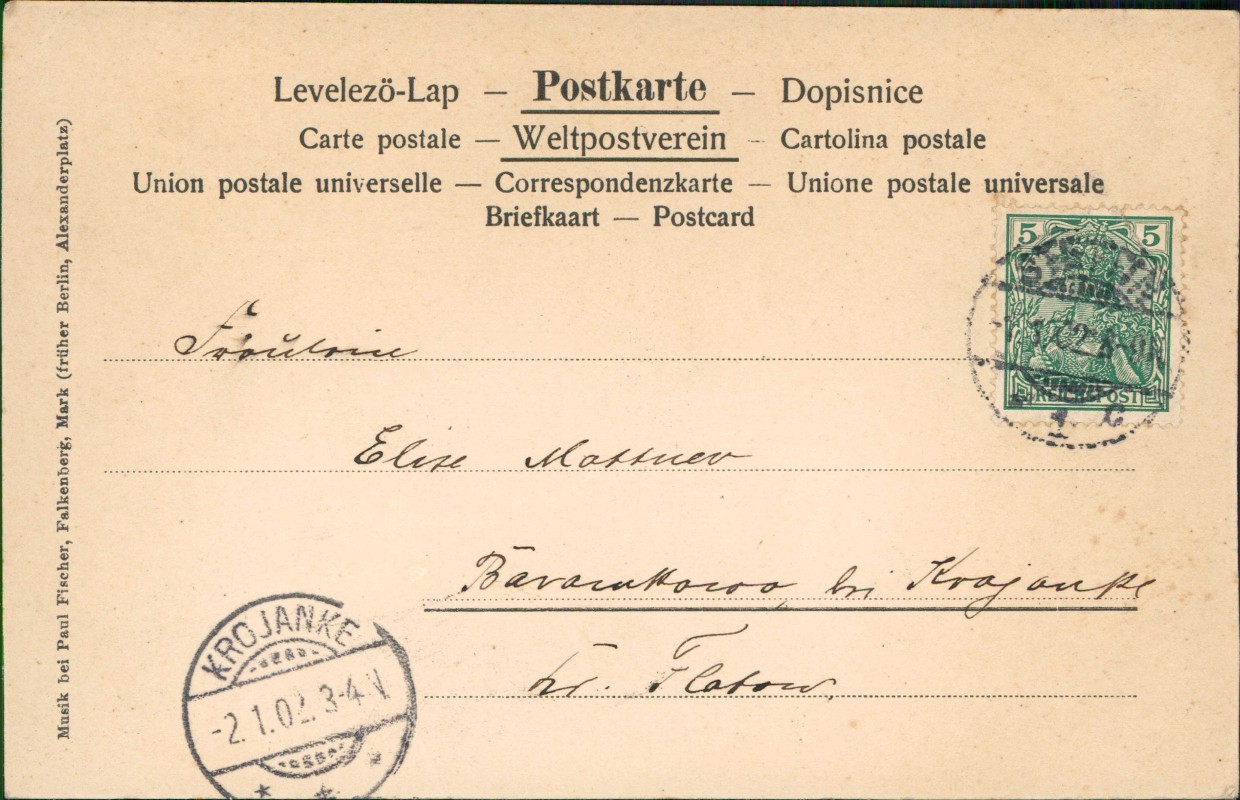 Levelezö-Lap — Postkarte — Dopisnice
Carte postale — Weltpostverein — Cartolina postale
Union postale universelle — Correspondenzkarte — Unione postale universale
Briefkaart — Postcard
5 5
REICHSPOST
1 C
Fräulein
Elise Mattner
bei Krojanke
Kr. Flatow.
KROJANKE
-2.1.02. 3-4 N
Musik bei Paul Fischer, Falkenberg, Mark (früher Berlin, Alexanderplatz)